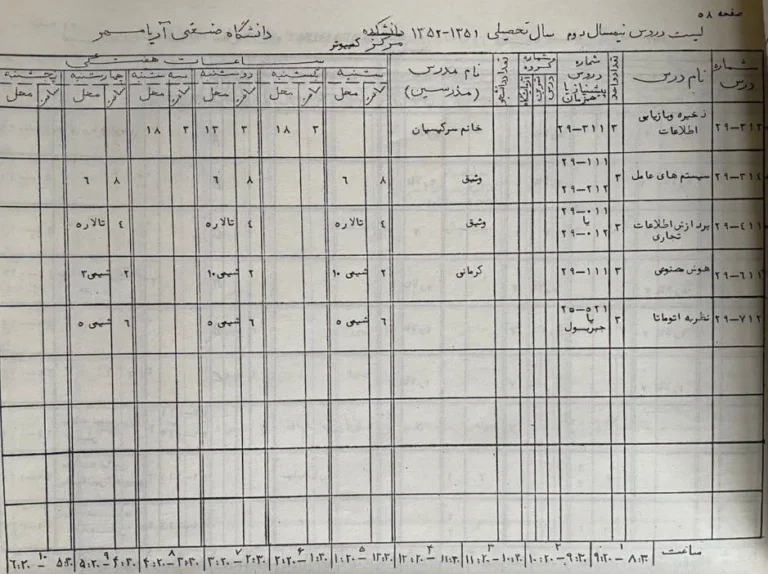 صفحه ۵۸
لیست دروس نیمسال دوم سال تحصیلی ۱۳۵۱-۱۳۵۲ دانشکده مرکز کمپیوتر دانشگاه صنعتی آریامهر
ساعات هفتگی
شماره درس نام درس تعداد واحد شماره دروس پیشنیاز یا همزمان نام مدرس (مدرسین) شنبه یکشنبه دوشنبه سه شنبه چهارشنبه پنجشنبه
محل محل محل محل محل محل
۲۹-۳۱۲ ذخیره وبازیابی اطلاعات ۳ ۲۹-۳۱۱ خانم سرکیسیان ۳ ۱۸ ۳ ۱۳ ۳ ۱۸
۲۹-۳۱۴ سیستم های عامل ۳ ۲۹-۱۱۱ ۲۹-۲۱۲ وثیق ۸ ۶ ۸ ۶ ۸ ۶
۲۹-۴۱۱ پردازش اطلاعات تجاری ۳ ۲۹-۰۱۱ یا ۲۹-۰۱۲ وثیق ۴ تالار۵ ۴ تالار۵ ۴ تالار۵
۲۹-۶۱۱ هوش مصنوعی ۳ ۲۹-۱۱۱ کرمانی ۲ شیمی ۱۰ ۲ شیمی۱۰ ۲ شیمی۳
۲۹-۷۱۲ نظریه اتوماتا ۳ ۲۵-۵۲۱ یا جبربول ۶ شیمی ۵ ۶ شیمی ۵ ۶ شیمی ۵
ساعت ۱ ۲ ۳ ۴ ۵ ۶ ۷ ۸ ۹ ۱۰
۸:۳۰-۹:۲۰ ۹:۳۰-۱۰:۲۰ ۱۰:۳۰-۱۱:۲۰ ۱۱:۳۰-۱۲:۲۰ ۱۲:۳۰-۱:۲۰ ۱:۳۰-۲:۲۰ ۲:۳۰-۳:۲۰ ۳:۳۰-۴:۲۰ ۴:۳۰-۵:۲۰ ۵:۳۰-۶:۲۰